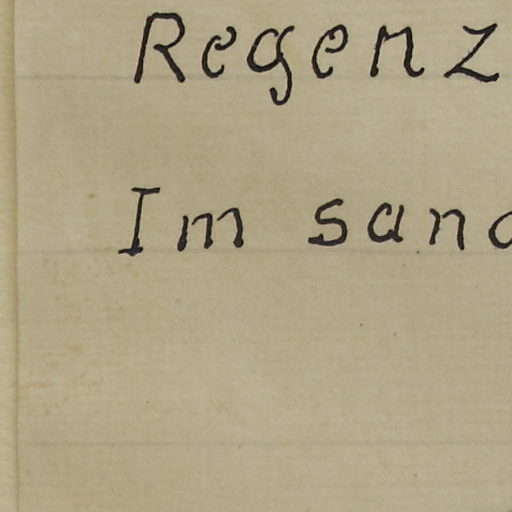 Regenz
Im sand